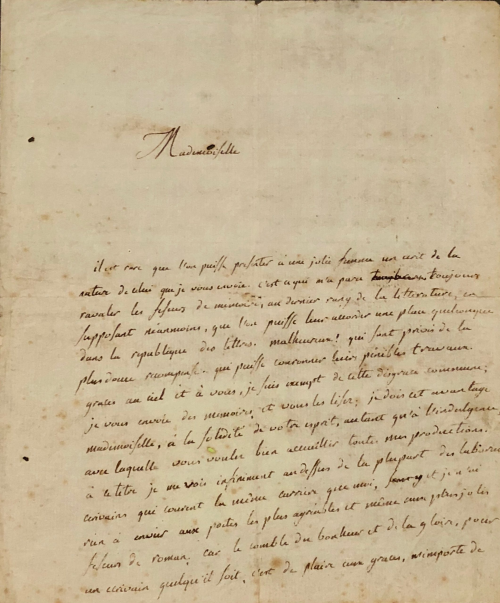 Mademoiselle
il est rare que l'on puisse presenter à une jolie femme un ecrit de la
nature de celui que je vous envoie. c'est ce qui m'a paru toujours
ravaler les feseurs de memoires, au dernier rang de la litterature, en
supposant néanmoins, que l'on puisse leur accorder une place quelconque
dans la republique des lettres. malheureux! qui sont privés de la
plus douce recompense qui puisse couronner leurs penibles travaux.
graces au ciel et à vous, je suis exempt de cette disgrace commune.
je vous envoie des memoires et vous les lisez. je dois cet avantage
mademoiselle, à la solidité de votre esprit, autant qu'à l'indulgence
avec laquelle vous voulez bien accueillir toutes mes productions.
à ce titre je me vois infiniment au dessus de la plupart des laborieux
ecrivains qui courent la même carriere que moi, et je n'ai
rien à envier aux poëtes les plus agréables et même aux plus jolis
feseurs de roman, car le comble du bonheur et de la gloire, pour
un ecrivain quelqu'il soit, c'est de plaire aux graces, n'importe de